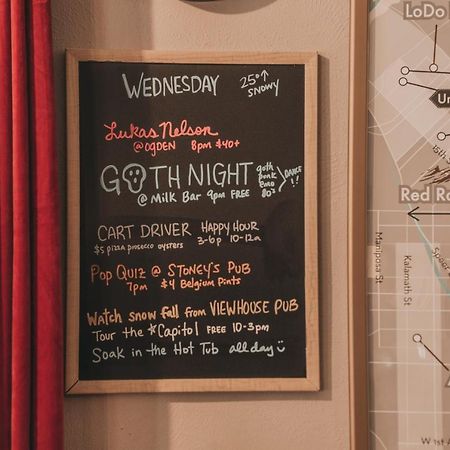 WEDNESDAY 25°↑
SNOWY
Lukas Nelson
@OGDEN 8pm $40+
GOTH NIGHT
@ Milk Bar 9pm FREE
goth
punk
80's
DANCE
!!
CART DRIVER HAPPY HOUR
$5 pizza prosecco oysters 3-6p 10-12a
Pop Quiz @ STONEY'S PUB
7pm $4 Belgium Pints
Watch snow fall from VIEWHOUSE PUB
Tour the *Capitol FREE 10-3pm
Soak in the Hot Tub all day
LoDo
Un
15th S
Red Ro
Mariposa St
Kalamath St
W 1st A